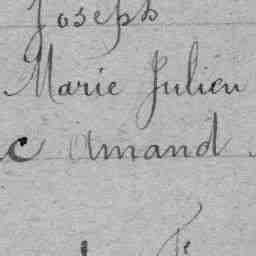 Joseph
Marie Julien
c Amand